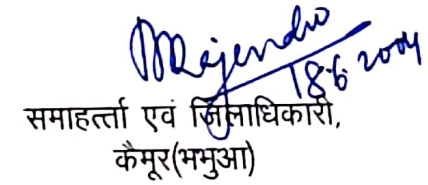 Rajendra
18.6.2004
समाहर्त्ता एवं जिलाधिकारी,
कैमूर(भभुआ)